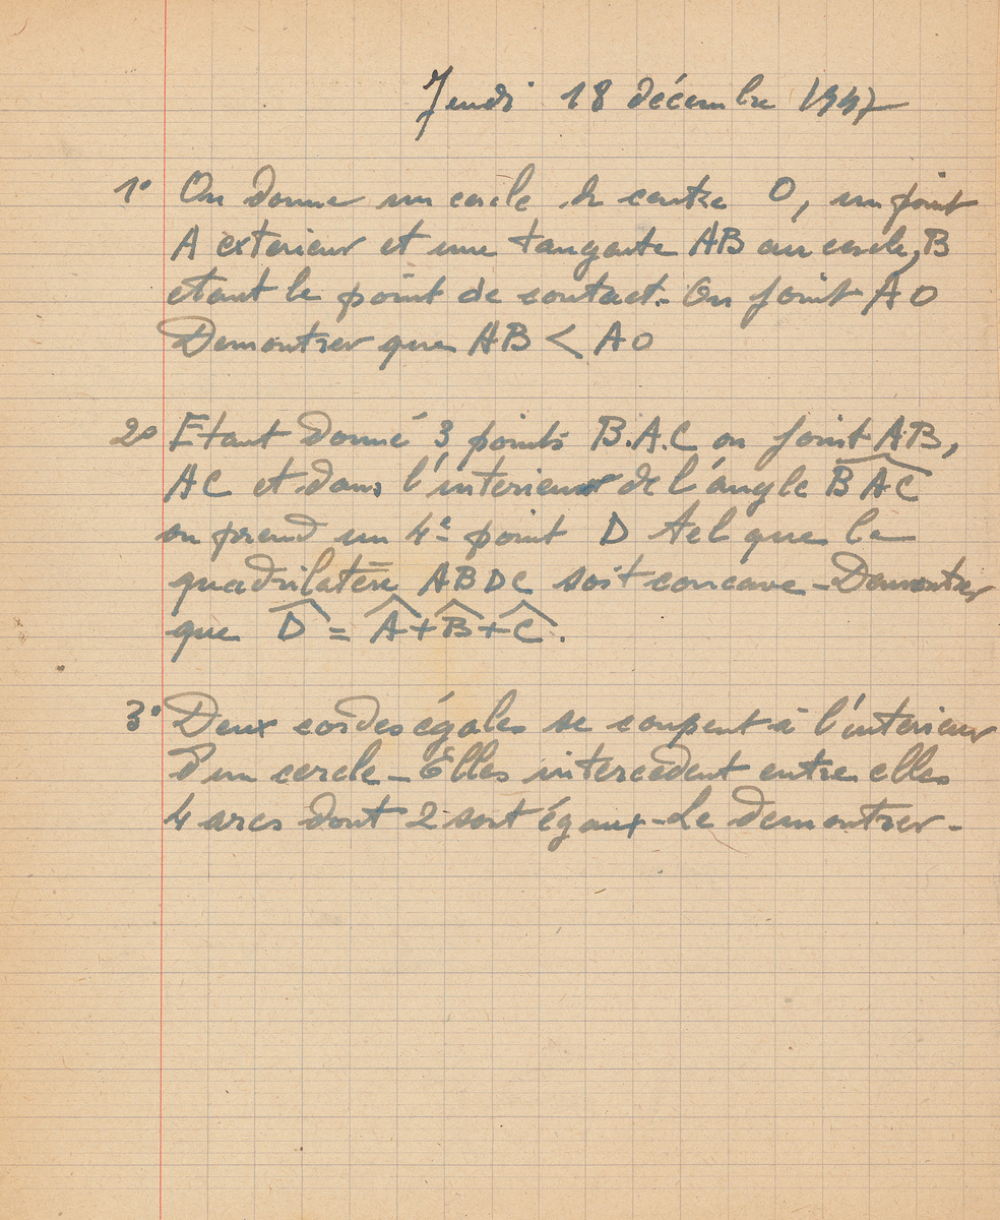 Jeudi 18 décembre 1947
1° On donne un cercle de centre O, un point
A exterieur et une tangante AB au cercle, B
etant le point de contact. On joint AO
Demontrer que AB < AO
2° Etant donné 3 points B.A.C on joint AB,
AC et dans l'interieur de l'angle BAC
on prend un 4e point D tel que le
quadrilatère ABDC soit concave - Demontrer
que D = A + B + C.
3° Deux cordes égales se coupent à l'interieur
d'un cercle - Elles intercedent entre elles
4 arcs dont 2 sont égaux - Le demontrer -